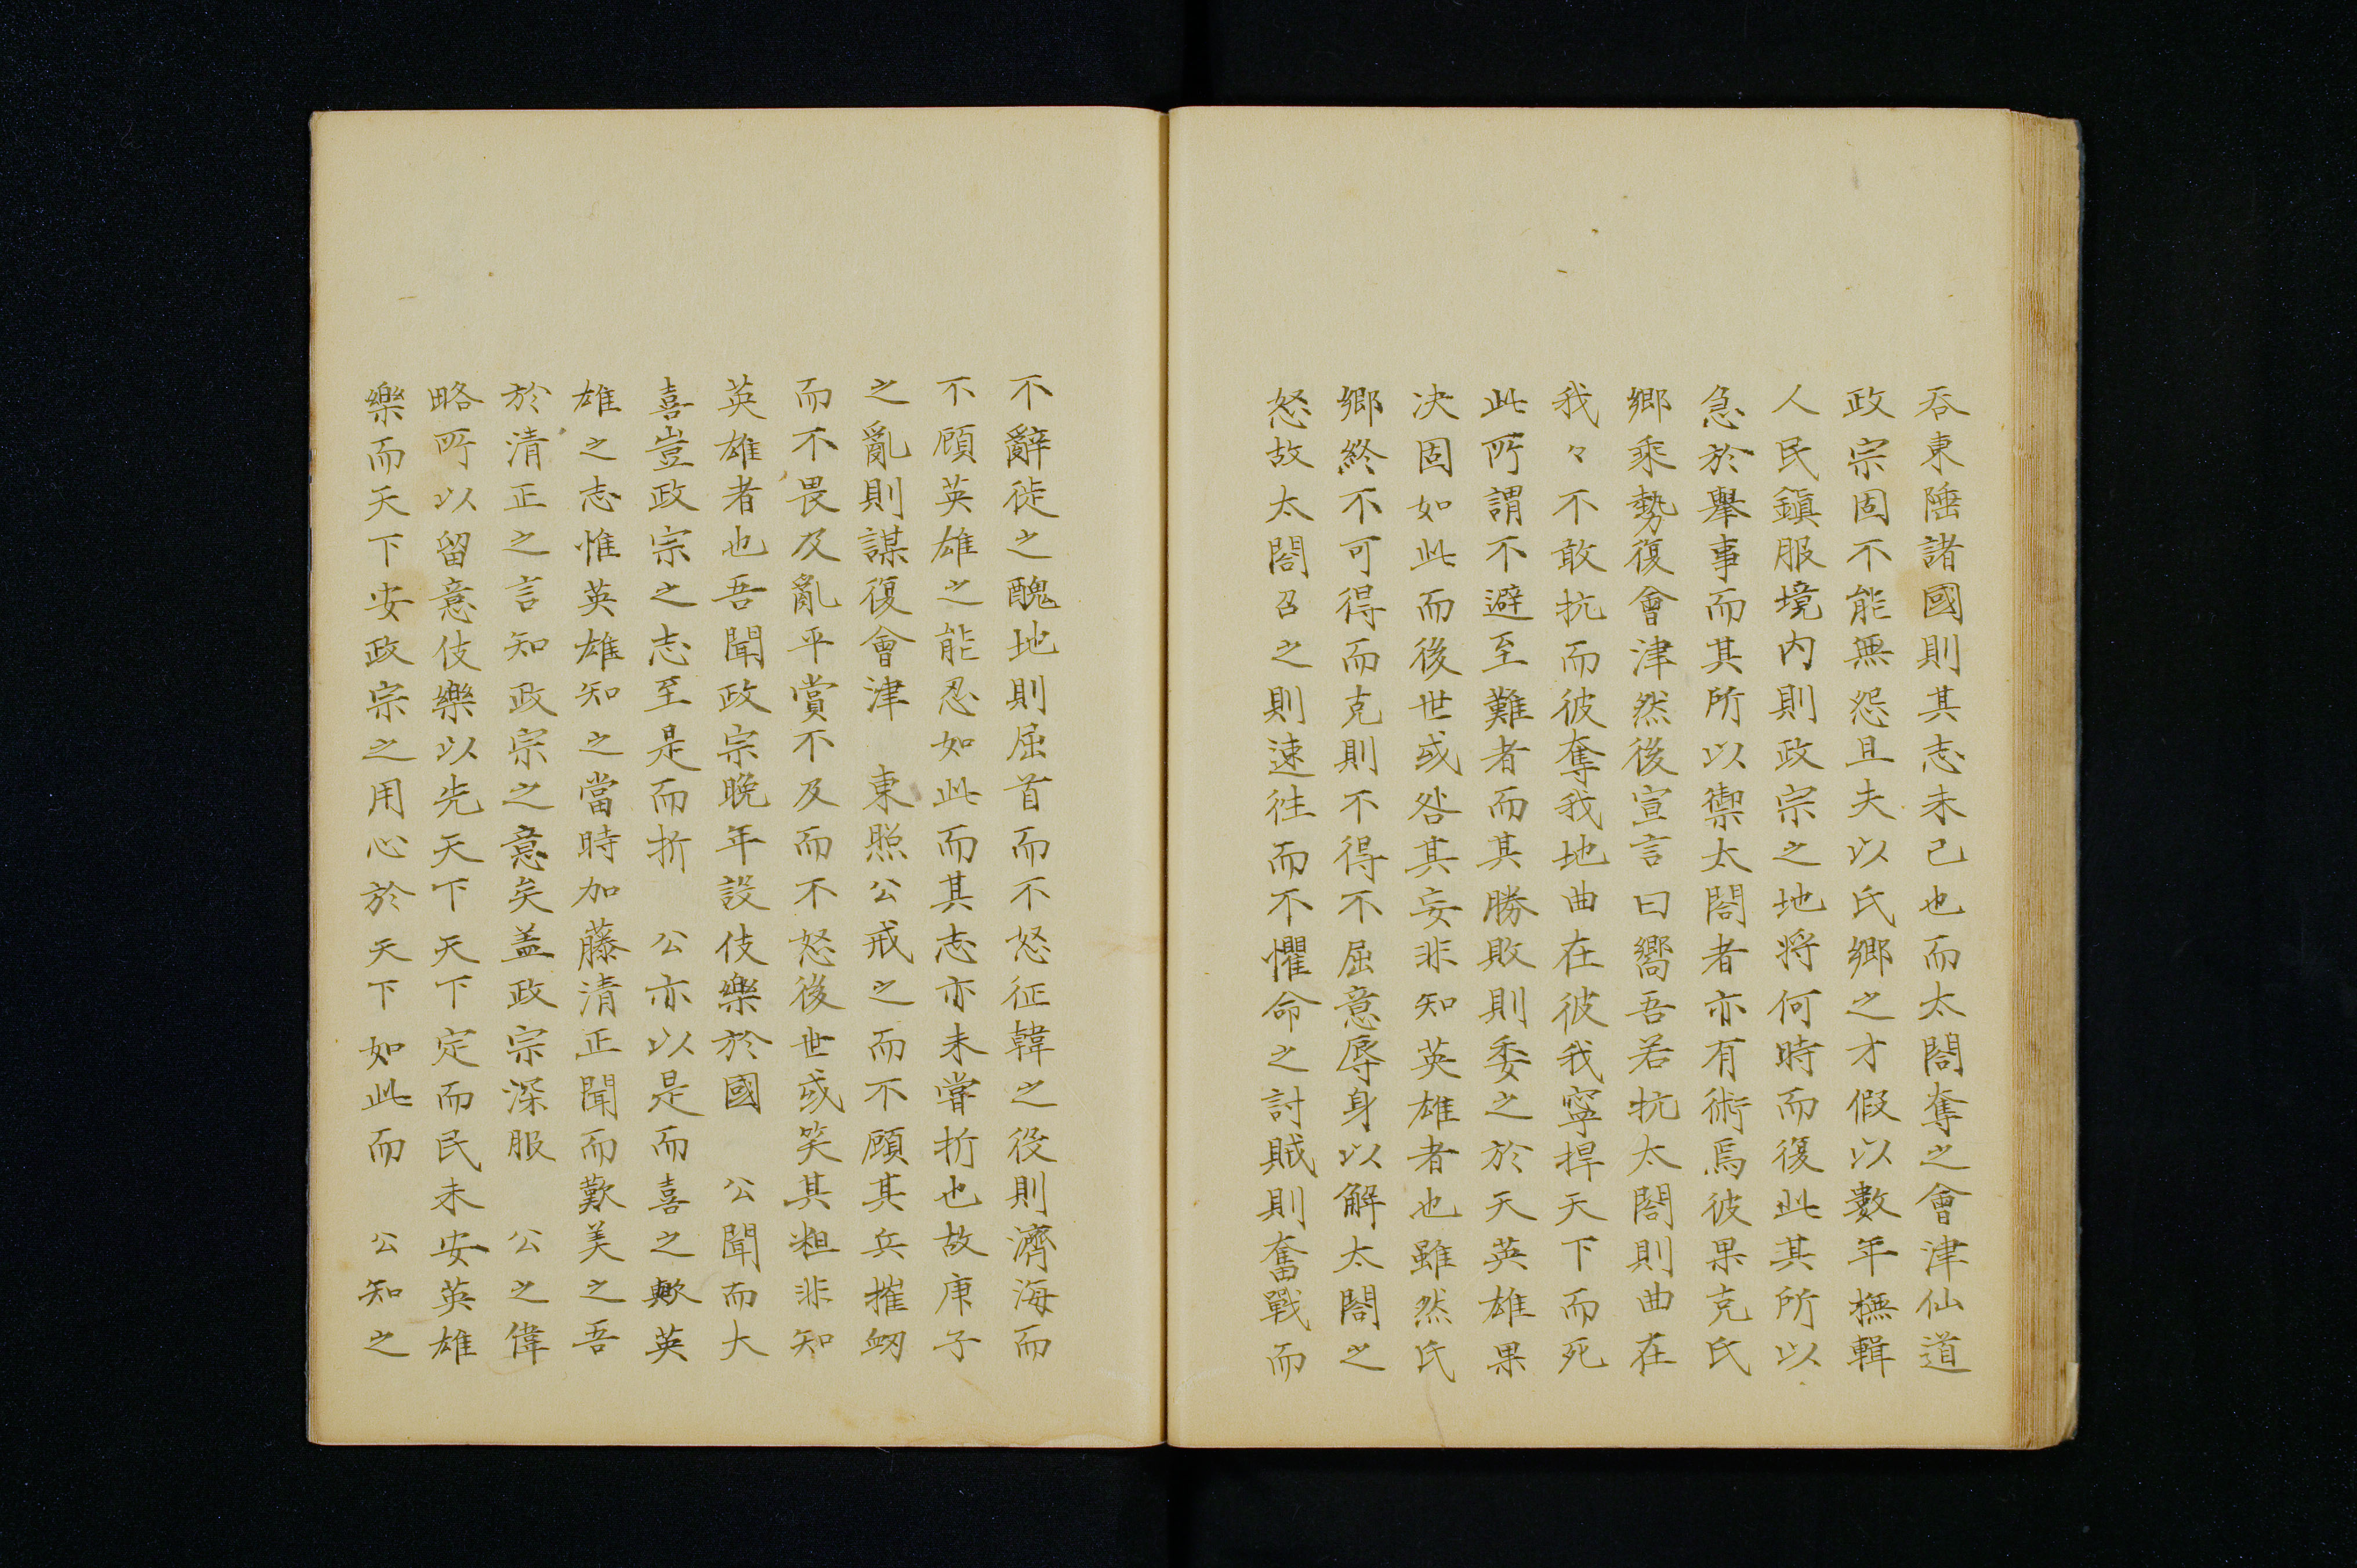 吞東陲諸國則其志未己也而太閤奪之會津仙道
政宗固不能無怨且夫以氏鄉之才假以數年撫輯
人民鎭服境内則政宗之地将何時而復此其所以
急於擧事而其所以禦太閤者亦有術焉彼果克氏
鄉乘勢復會津然後宣言曰嚮吾若抗太閤則曲在
我々不敢抗而彼奪我地曲在彼我寧捍天下而死
此所謂不避至難者而其勝敗則委之於天英雄果
决固如此而後世或咎其妄非知英雄者也雖然氏
鄉終不可得而克則不得不屈意辱身以解太閤之
怒故太閤召之則速往而不懼命之討賊則奮戰而
不辭徙之醜地則屈首而不怒征韓之役則濟海而
不顧英雄之能忍如此而其志亦未嘗折也故庚子
之亂則謀復會津　東照公戒之而不顧其兵摧衂
而不畏及亂平賞不及而不怒後世或笑其粗非知
英雄者也吾聞政宗晩年設伎樂於國　公聞而大
喜豈政宗之志至是而折　公亦以是而喜之歟英
雄之志惟英雄知之當時加藤清正聞而歎美之吾
於清正之言知政宗之意矣盖政宗深服　公之偉
略所以留意伎樂以先天下天下定而民未安英雄
樂而天下安政宗之用心於天下如此而　公知之